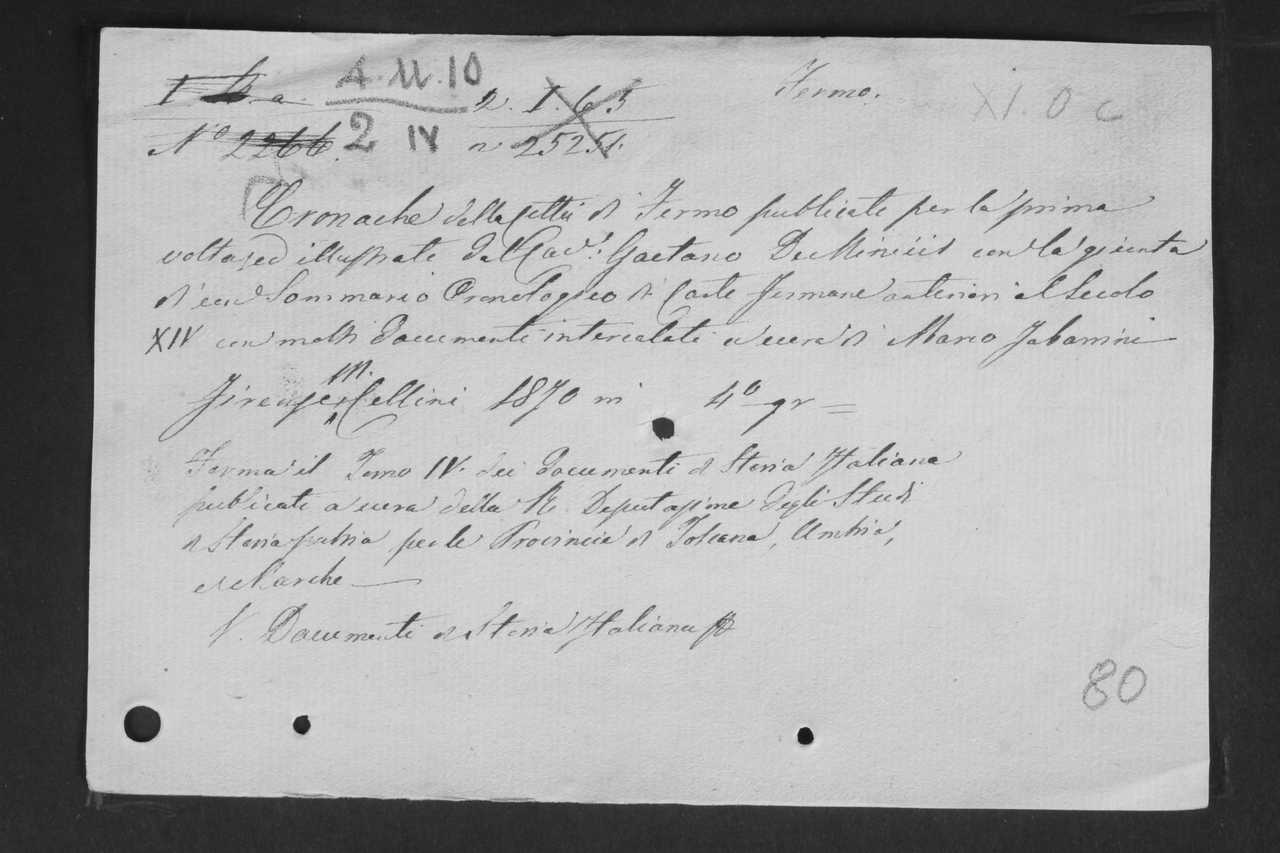 A.M.10
2. I. 6. 5
Fermo.
XI. O c
No 2266.
2 IV
n 25251.
Cronache della Città di Fermo publicate per la prima
volta, ed illustrate dal Cav.r Gaetano De Minicis con la giunta
di un Sommario Cronologico di Carte Fermane anteriori al Secolo
XIV con molti Documenti intercalati a cura di Marco Tabarrini
Firenze, M. Cellini 1870 in 4o gr =
Forma il Tomo IV. dei Documenti di Storia Italiana
publicati a cura della R. Deputazione degli Studi
di Storia patria per le Provincie di Toscana, Umbria,
e Marche
V. Documenti di Storia Italiana
80